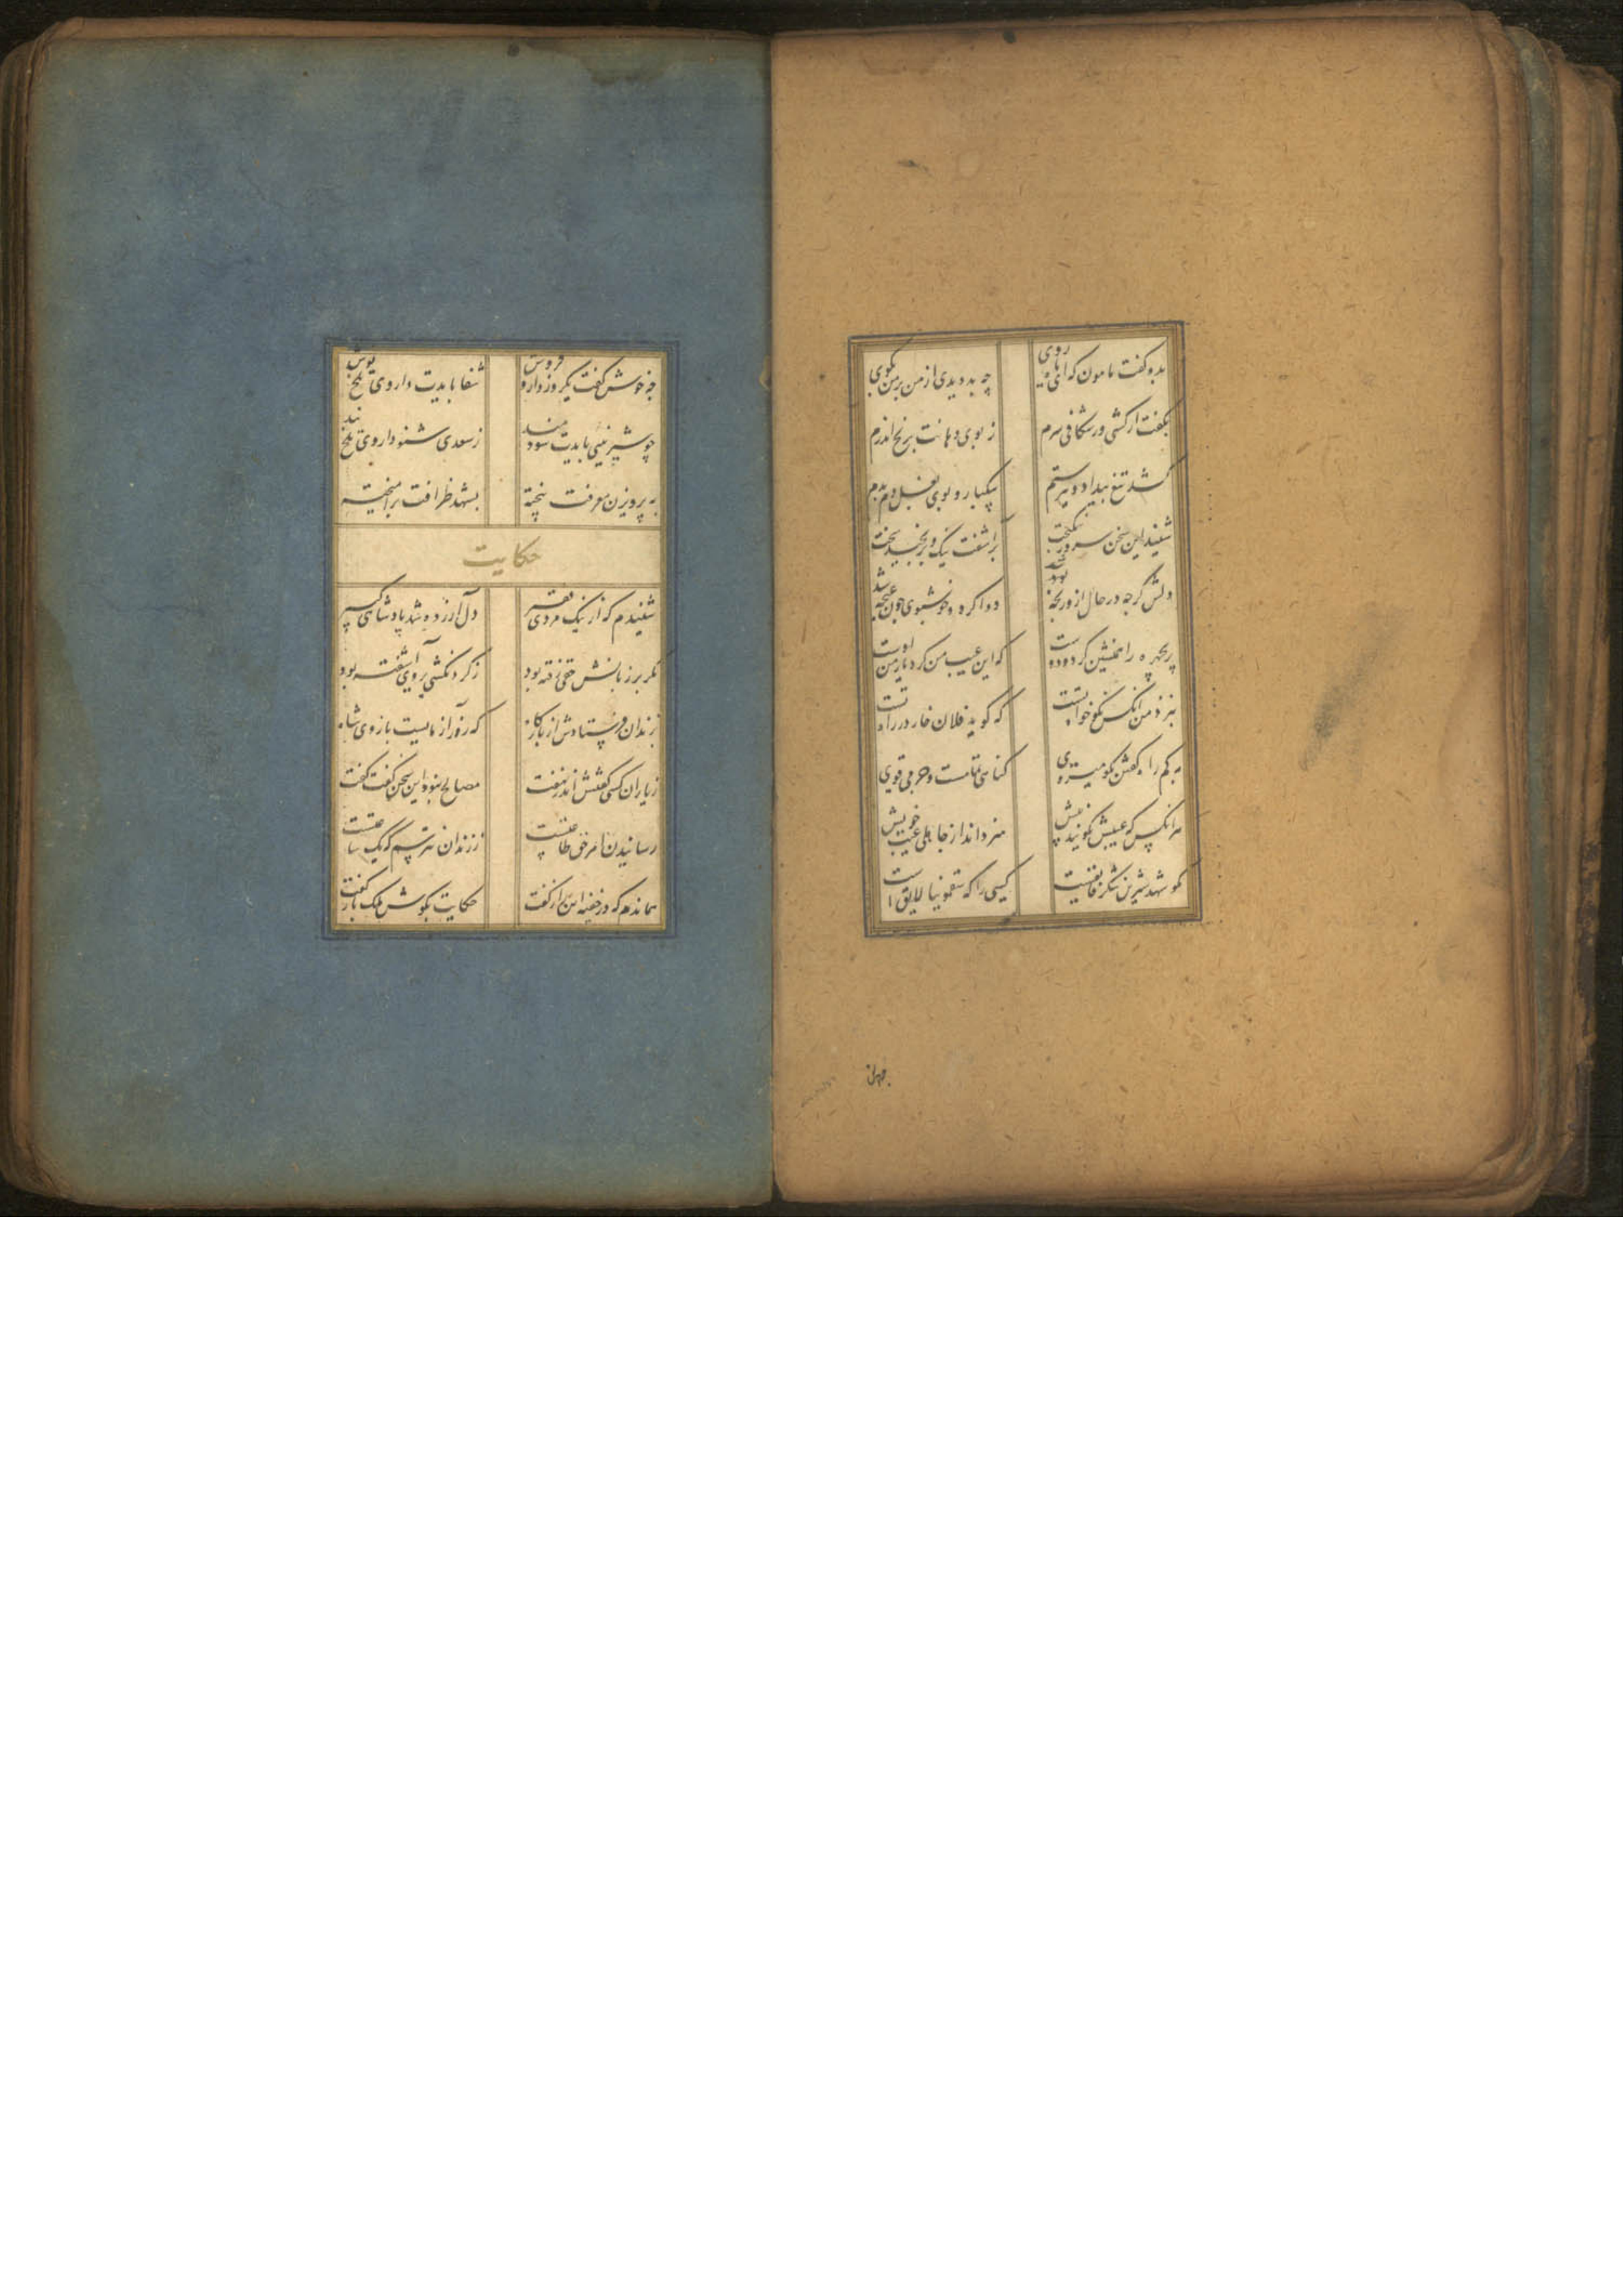 بدو گفت مامون که ای ماه روی
چه بد دیدی از من بر من بگوی
بگفت ار کشی ور شکافی سرم
ز بوی دهانت برنج اندرم
کشد تیغ بیداد و تیر ستم
بیکبار و بوی دهن دم بدم
شنید این سخن سرور نیکبخت
برآشفت نیک و برنجید سخت
دلش گرچه در حال ازو رنجه شد
دوا کرد و خوشبوی چون غنچه شد
پریچهره را همنشین کرد و دوست
که این عیب من گفت یار من اوست
بنزد من آنکس نکو خواه تست
که گوید فلان خار در راه تست
به گم راه گفتن نکو میروی
گناهی تمامست و جرمی قوی
هر آنکس که عیبش نگویند پیش
هنر داند از جاهلی عیب خویش
مگو شهد شیرین شکر فایقست
کسی را که سقمونیا لایق است
چه خوش گفت یکروز دارو فروش
شفا بایدت داروی تلخ نوش
چو شیرینیی بایدت سودمند
ز سعدی شنو داروی تلخ پند
به پرویزن معرفت بیخته
بشهد ظرافت برآمیخته
حکایت
شنیدم که از نیک مردی فقیر
دل آزرده شد پادشاهی کبیر
مگر بر زبانش حقی رفته بود
ز گردنکشی بروی آشفته بود
بزندان فرستادش از بارگاه
که زورآزمایست بازوی شاه
ز یاران کسی گفتش اندر نهفت
مصالح نبود این سخن گفت گفت
رسانیدن امر حق طاعتست
ز زندان نترسم که یک ساعتست
هماندم که در خفیه این راز گفت
حکایت بگوش ملک باز گفت